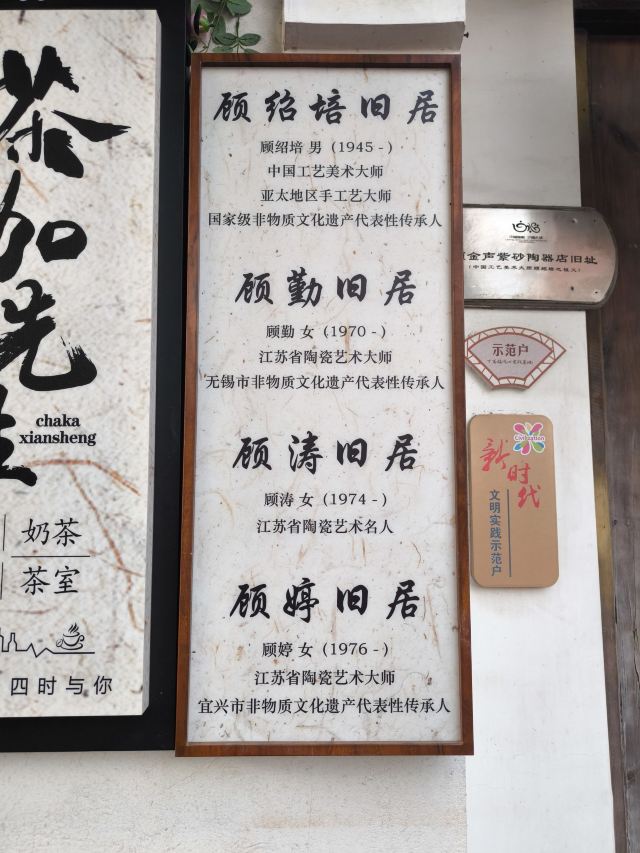 茶咖先生
chaka
xiansheng
奶茶
茶室
四时与你
顾绍培旧居
顾绍培 男 (1945 - )
中国工艺美术大师
亚太地区手工艺大师
国家级非物质文化遗产代表性传承人
顾勤旧居
顾勤 女 (1970 - )
江苏省陶瓷艺术大师
无锡市非物质文化遗产代表性传承人
顾涛旧居
顾涛 女 (1974 - )
江苏省陶瓷艺术名人
顾婷旧居
顾婷 女 (1976 - )
江苏省陶瓷艺术大师
宜兴市非物质文化遗产代表性传承人
金声紫砂陶器店旧址
(中国工艺美术大师顾绍培之祖父)
示范户
Civilization
新时代
文明实践示范户